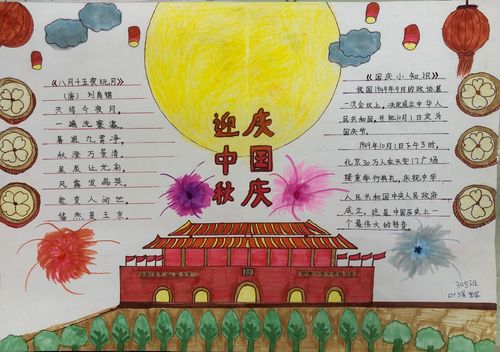 《八月十五夜玩月》
(唐) 刘禹锡
天将今夜月,
一遍洗寰瀛。
暑退九霄净,
秋澄万景清。
星辰让光彩,
风露发晶英。
能变人间世,
翛然是玉京。
迎中秋
庆国庆
《国庆小知识》
我国1949年9月的政协第
一次会议上,决定成立中华人
民共和国,并把10月1日定为
国庆节。
1949年10月1日下午3时,
北京30万人在天安门广场
隆重举行典礼,庆祝中华
人民共和国中央人民政府
成立,这是中国历史上一
个最伟大的转变
305班